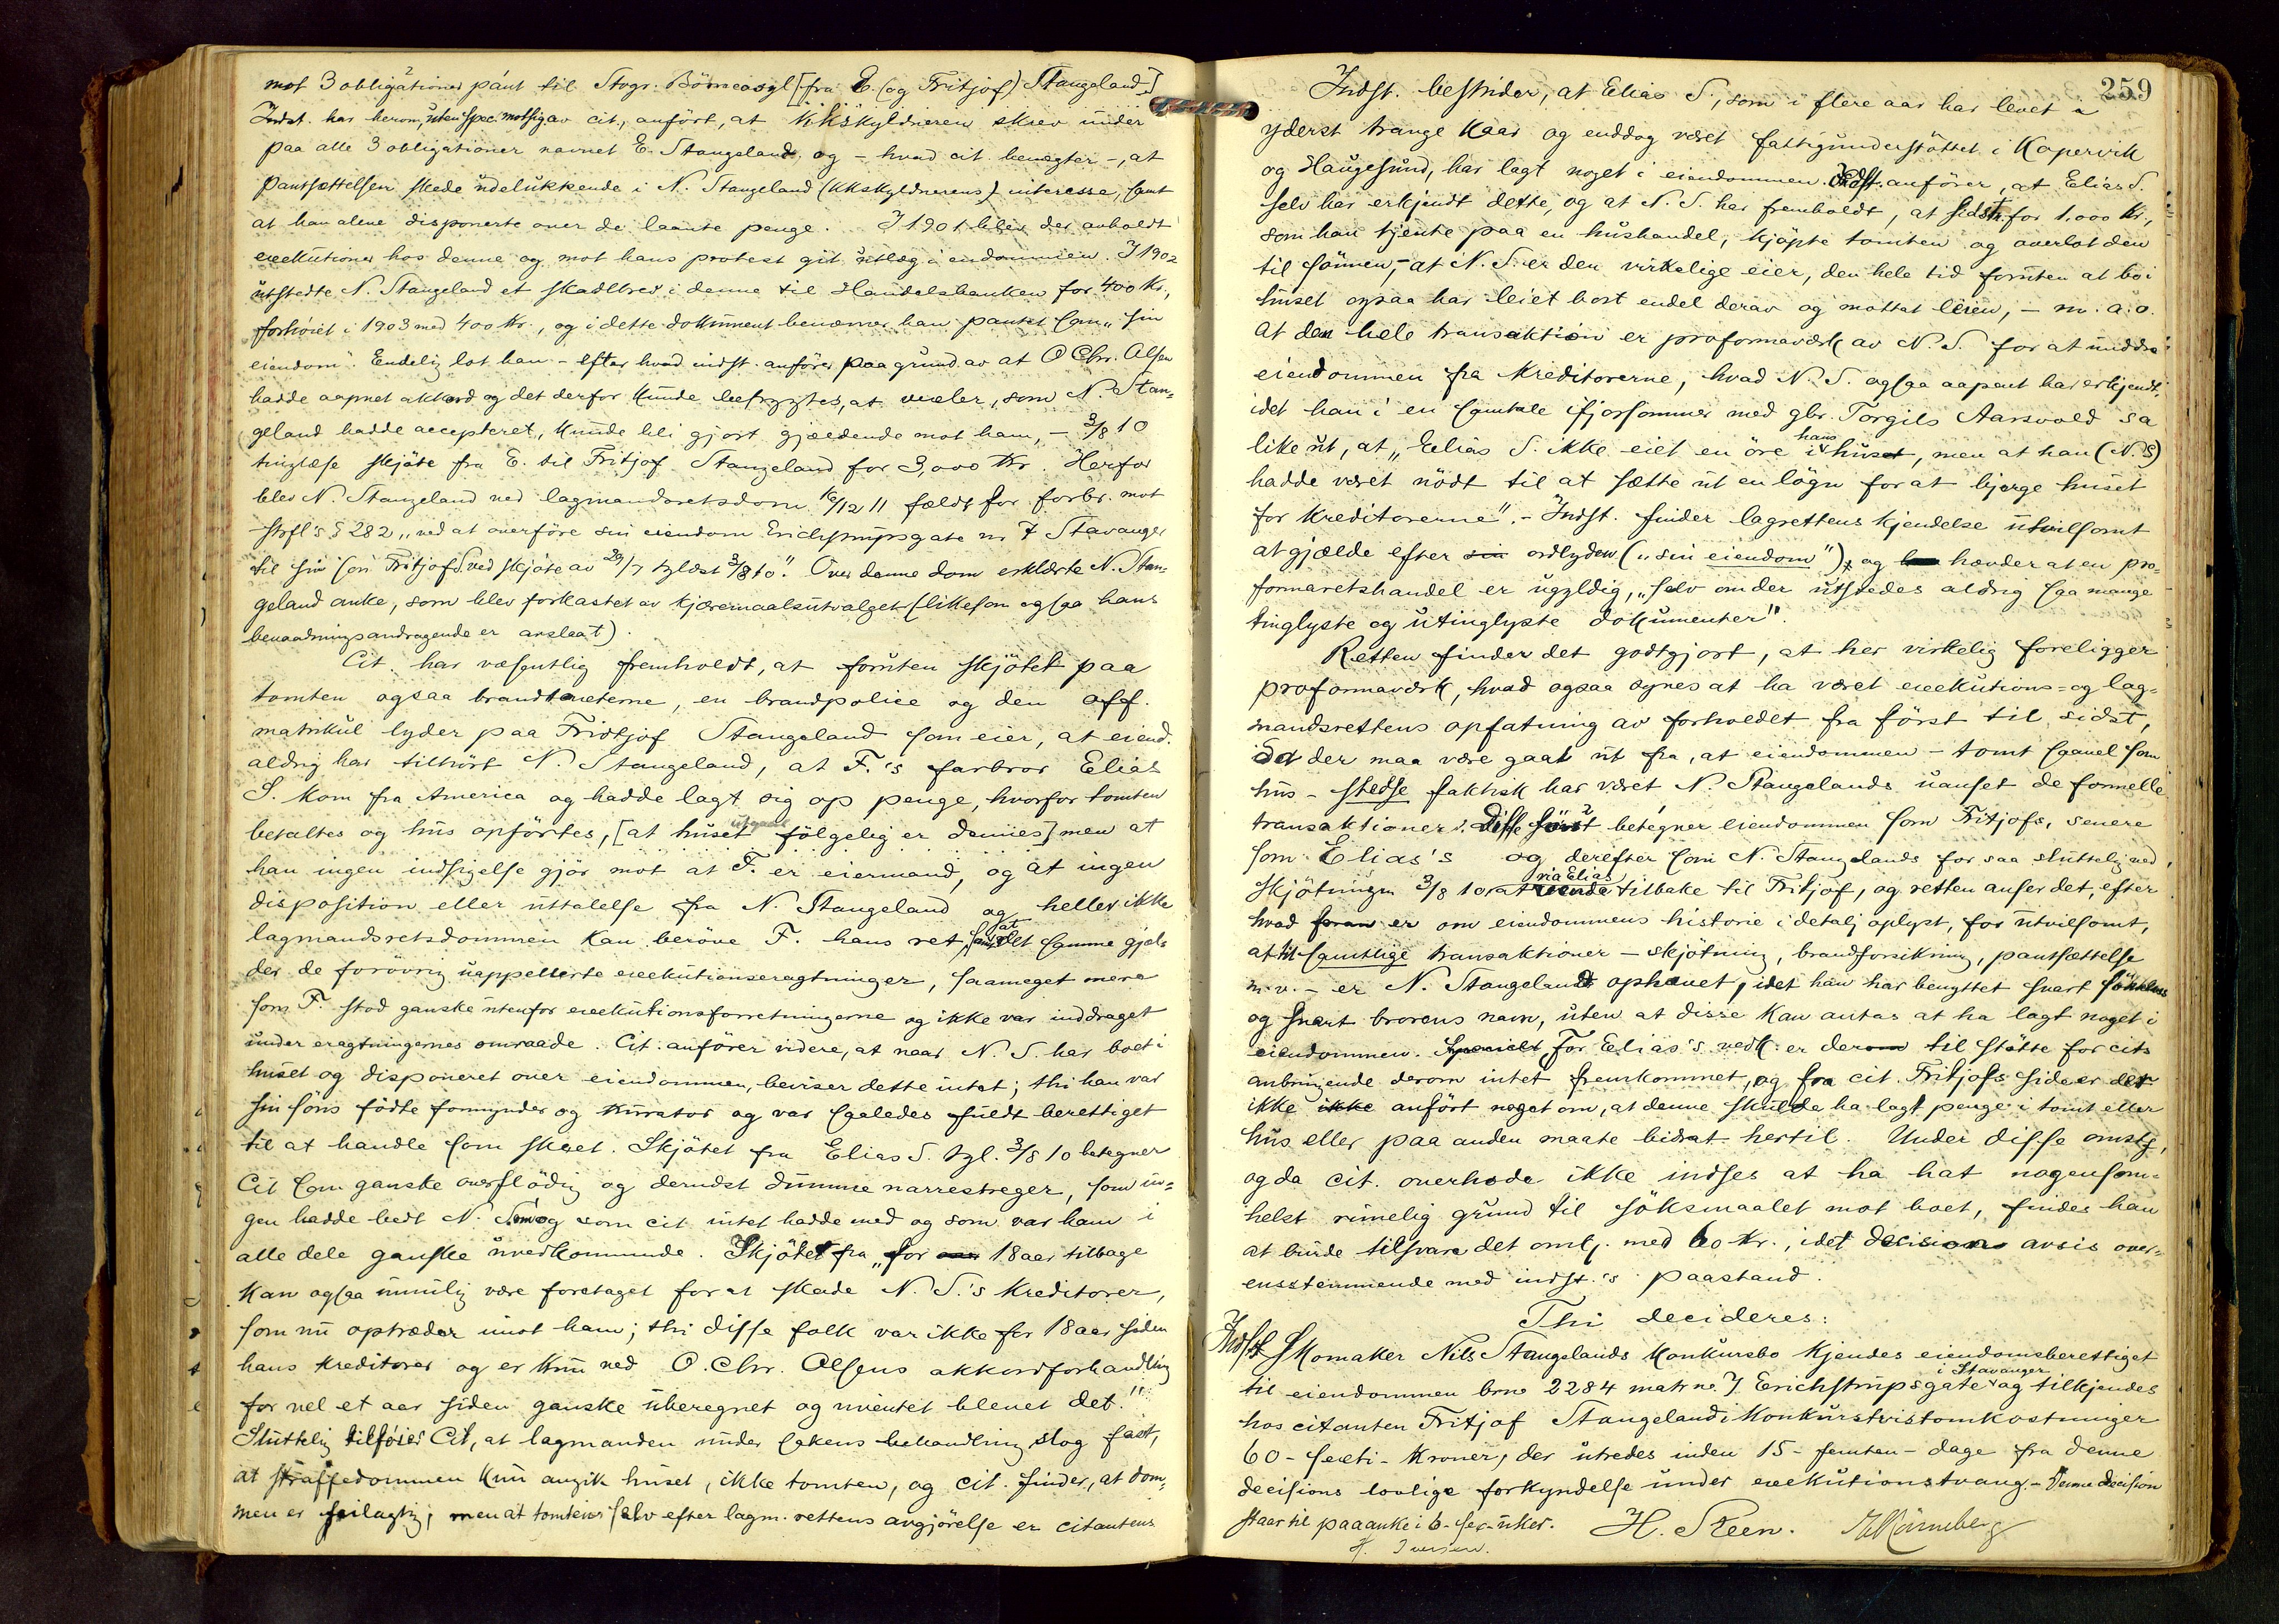 mot 3 obligationer pant til Stvgr. Börneasyl [fra E. (og Fritjof) Stangeland.]
Indst. har herom, uten spec. motsig. av cit., anfört, at kkskyldneren skrev under
paa alle 3 obligationer navnet E. Stangeland, og – hvad cit. benegter –, at
pantsættelsen skede udelukkende i N. Stangeland (kkskyldnerens) interesse, samt
at han alene disponerte over de laante penge. I 1901 blev der avholdt
exekutioner hos denne og mot hans protest git utlæg i eiendommen. I 1902
utstedte N. Stangeland et skadlbrev i denne til Handelsbanken for 400 Kr.,
forhöiet i 1903 med 400 Kr., og i dette dokument benævner han pantet som "sin
eiendom". Endelig lot han – efter hvad indst. anförer paa grund av at O Chr. Olsen
hadde aapnet akkord og det derfor kunde befrygtes, at vexler, som N. Stan=
geland hadde accepteret, kunde bli gjort gjældende mot ham, – 3/8 10
tinglæse skjöte fra E. til Fritjof Stangeland for 3,000 Kr. Herfor
blev N. Stangeland ved lagmandsretsdom 16/12 11 fældt for forbr. mot
strfl's § 282 "ved at overföre sin eiendom Erichstrupsgate nr 7 Stavanger
til sin sön Fritjof S. ved skjöte av 29/7 tglæst 3/8 10". Over denne dom erklærte N. Stan=
geland anke, som blev forkastet av kjæremaalsutvalget (likesom ogsaa hans
benaadningsandragende er avslaat).
Cit. har væsentlig fremholdt, at foruten skjötet paa
tomten ogsaa brandtaxterne, en brandpolice og den off.
matrikul lyder paa Fridtjof Stangeland som eier, at eiend.
aldrig har tilhört N. Stangeland, at F.'s farbror Elias
S. kom fra America og hadde lagt sig op penge, hvorfor tomten
betaltes og hus opförtes, [at huset fölgelig er dennes] men at
han ingen indsigelse gjör mot at F. er eiermand, og at ingen
disposition eller uttalelse fra N. Stangeland og heller ikke
lagmandsretsdommen kan beröve F. hans ret, samt at det samme gjæl=
der de forövrig uappellerte exekutionseragtninger, saameget mere
som F. stod ganske utenfor exekutionsforretningerne og ikke var inddraget
under eragtningernes omraade. Cit. anförer videre, at naar N. S. har boet i
huset og disponeret over eiendommen, beviser dette intet; thi han var
sin söns födte formynder og kurator og var saaledes fuldt berettiget
til at handle som skeet. Skjötet fra Elias S. tgl. 3/8 10 betegner
Cit som ganske overflödig og derudst dumme narrestreger, som in=
gen hadde bedt N. S. om og som cit intet hadde med og som var ham i
alle dele ganske uvedkommende. Skjötet fra "for 18 aar tilbage
kan ogsaa umulig være foretaget for at skade N. S.'s kreditorer,
som nu optræder imot ham; thi disse folk var ikke for 18 aar siden
hans kreditorer og er kun ved O. Chr. Olsens akkordforhandling
for vel et aar siden ganske uberegnet og uventet blevet det."
Sluttelig tilföier Cit, at lagmanden under sakens behandling slog fast,
at straffedommen kun angik huset, ikke tomten, og cit. finder, at dom=
men er feilagtig, men at tomten selv efter lagm. rettens avgjörelse er citantens
259
Indst. bestrider, at Elias S., som i flere aar har levet i
yderst trange kaar og enddog været fattigunderstöttet i Kopervik
og Haugesund, har lagt noget i eiendommen. Indst. anförer, at Elias S.
selv har erkjendt dette, og at N. S. har fremholdt, at sidstn. for 1.000 Kr.,
som han tjente paa en hushandel, kjöpte tomten og overlot den
til sönnen, – at N. S. er den virkelige eier, den hele tid foruten at bo i
huset ogsaa har leiet bort endel derav og mottat leien, – m. a. o.
at den hele transaktion er proformaværk av N. S. for at unddra
eiendommen fra kreditorerne, hvad N. S. ogsaa aapent har erkjendt,
idet han i en samtale ifjorsommer med gbr. Torgils Aarsvold sa
like ut, at "Elias S. ikke eiet en öre i hans huset, men at han (N. S)
hadde været nödt til at sætte ut en lögn for at bjerge huset
for kreditorerne". – Indst. finder lagrettens kjendelse utvilsomt
at gjælde efter sin ordlyden ("sin eiendom"), og hævder at en pro=
formaretshandel er ugyldig, "selv om der utstedes aldrig saa mange
tinglyste og utinglyste dokumenter".
Retten finder det godtgjort, at her virkelig foreligger
proformaværk, hvad ogsaa synes at ha været exekutions= og lag=
mandsrettens opfatning av forholdet fra först til sidst,
idet der maa være gaat ut fra, at eiendommen – tomt saavel som
hus – stedse faktisk har været N. Stangelands uanset de formelle
transaktioner. Disse först betegner eiendommen som Fritjofs, senere
som Elias's og derefter som N. Stangelands for saa sluttelig ved
skjötningen 3/8 10 at vende via Elias tilbake til Fritjof, og retten anser det, efter
hvad foran er om eiendommens historie i detalj oplyst, for utvilsomt,
at til samtlige transaktioner – skjötning, brandforsikring, pantsættelse
m. v. – er N. Stangeland ophavet, idet han har benyttet snart sönnens
og snart brorens navn, uten at disse kan antas at ha lagt noget i
eiendommen. Specielt For Elias's vedk. er derom til stötte for cits
anbringende derom intet fremkommet, og fra cit. Fritjofs side er det
ikke ikke anfört noget om, at denne skulde ha lagt penge i tomt eller
hus eller paa anden maate bidrat hertil. Under disse omstg,
og da cit. overhode ikke indses at ha hat nogensom=
helst rimelig grund til söksmaalet mot boet, findes han
at burde tilsvare det omk. med 60 Kr., idet decision avsis over=
ensstemmende med indst.'s paastand.
Thi decideres:
Indst Skomaker Nils Stangelands konkursbo kjendes eiendomsberettiget
til eiendommen brno 2284 matr no. 7 Erichstrupsgate i Stavanger og tilkjendes
hos citanten Fritjof Stangeland i konkurstvistomkostninger
60 – sexti – kroner, der utredes inden 15 – femten – dage fra denne
decisions lovlige forkyndelse under exekutionstvang. – Denne decision
staar til paaanke i 6 – sex – uker. H. Steen.
H. Iversen.